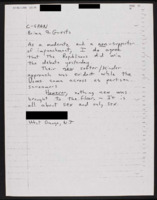 C-SPAN
Brian
As a moderate and a non-supporter
of impeachment, I do agree
that the Republicans did win
the debate yesterday.
Their center/
approach was evident while the
Dems came across as partisan
screamers.
However, nothing new was
brought to the floor, & it is
all about sex and only sex.
West Orange, NJ